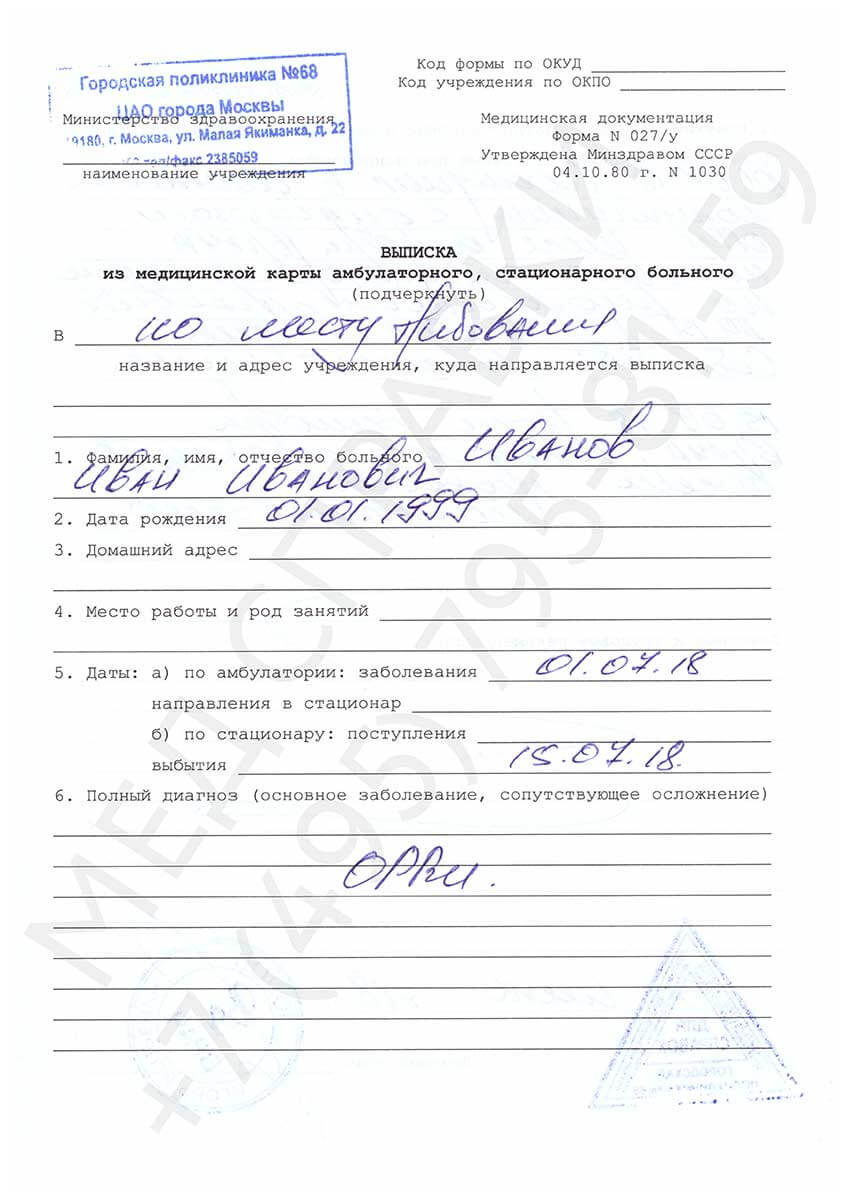 Городская поликлиника №68
ЦАО города Москвы
г. Москва, ул. Малая Якиманка, д. 22
2385059
Министерство здравоохранения
наименование учреждения
Код формы по ОКУД
Код учреждения по ОКПО
Медицинская документация
Форма N 027/у
Утверждена Минздравом СССР
04.10.80 г. N 1030
ВЫПИСКА
из медицинской карты амбулаторного, стационарного больного
(подчеркнуть)
В по месту
название и адрес учреждения, куда направляется выписка
1. Фамилия, имя, отчество больного Иванов
Иван Иванович
2. Дата рождения 01.01.1999
3. Домашний адрес
4. Место работы и род занятий
5. Даты: а) по амбулатории: заболевания 01.07.18
направления в стационар
б) по стационару: поступления
выбытия 15.07.18.
6. Полный диагноз (основное заболевание, сопутствующее осложнение)
ОРВИ.
ДЛЯ
СПРАВОК
ГОРОДСКАЯ
МЕД СПРАВКИ
+7 (495) 795-81-59